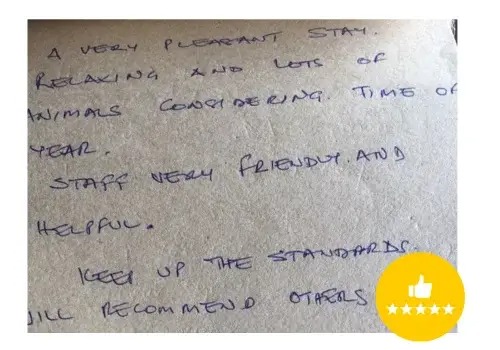 A VERY PLEASANT STAY.
RELAXING AND LOTS OF
ANIMALS CONSIDERING. TIME OF
YEAR.
STAFF VERY FRIENDLY. AND
HELPFUL.
KEEP UP THE STANDARDS.
WILL RECOMMEND OTHERS